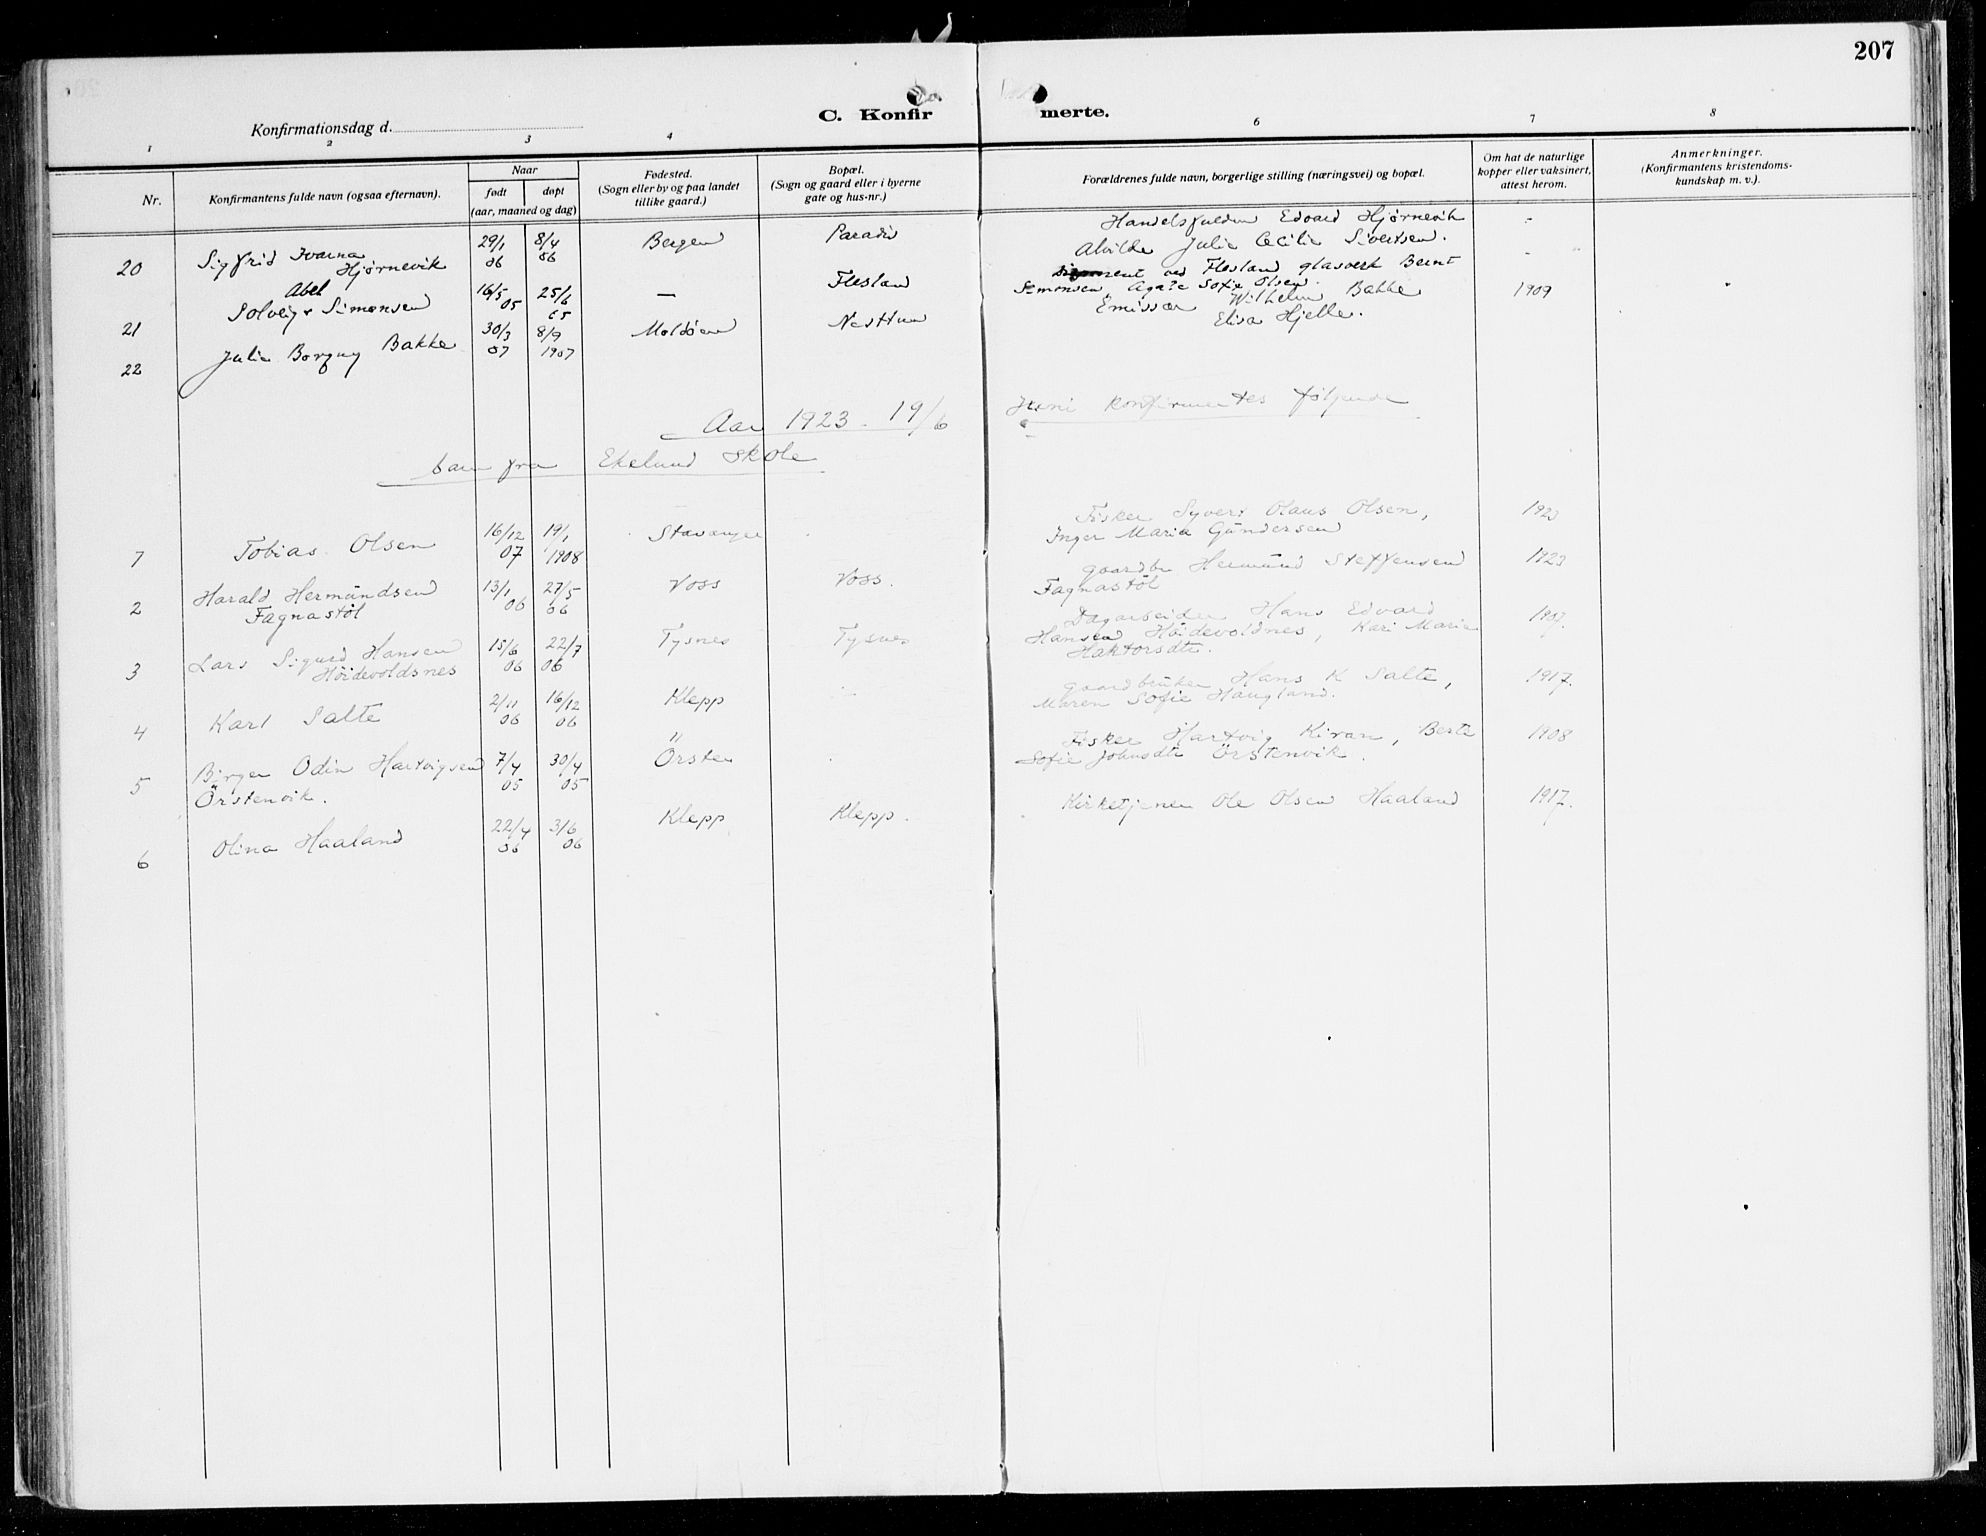 207
C. Konfirmerte.
Konfirmationsdag d.
1 2 3 4 6 7 8
Nr.
Konfirmantens fulde navn (ogsaa efternavn).
Naar
født døpt
(aar, maaned og dag)
Fødested.
(Sogn eller by og paa landet
tillike gaard.)
Bopæl.
(Sogn og gaard eller i byerne
gate og hus-nr.)
Forældrenes fulde navn, borgerlige stilling (næringsvei) og bopæl.
Om hat de naturlige
kopper eller vaksinert,
attest herom.
Anmerkninger.
(Konfirmantens kristendoms-
kundskap m. v.).
20 Sigfrid Ivarna Hjørnevik 29/1 06 8/4 06 Bergen Paradis
Edvard Hjørnevik
Alvilde Julie Cecilie Sivertsen.
21 Abel
Solveig Simonsen 16/5 05 25/6 05 — Flesland
ved Flesland glasverk Bernt
Simonsen Agate Sofie Olsen.
22 Julie Borgny Bakke 30/3 07 8/9 1907 Moldöen Nesttun
Emissær Wilhelm Bakke 1909
Elisa Hjelle.
Aar 1923 - 19/6 Juni konfirmertes følgende
barn fra Ekelund skole
1 Tobias Olsen 16/12 07 19/1 1908 Stavanger
Fisker Syvert Olaus Olsen, 1923
Inger Maria Gündersen
2 Harald Hermündsen 13/1 06 27/5 06 Voss Voss.
Fagnastöl
gaardbr Hermünd Steffensen 1923
Fagnastöl
3 Lars Sigurd Hansen 15/6 06 22/7 06 Tysnes Tysnes
Höidevoldsnes
Dagarbeider Hans Edvard 1907.
Hansen Höidevoldnes, Kari Marie
Haktorsdtr.
4 Karl Salte 2/11 06 16/12 06 Klepp
gaardbruker Hans K Salte, 1917.
Maren Sofie Haugland.
5 Birger Odin Hartvigsen 7/4 05 30/4 05 Örsten
Örstenvik.
Fisker Hartvig Kiran, Berte 1908
Sofie Johnsdtr Örstenvik.
6 Olina Haaland 22/4 06 3/6 06 Klepp Klepp.
Kirketjener Ole Olsen Haaland 1917.